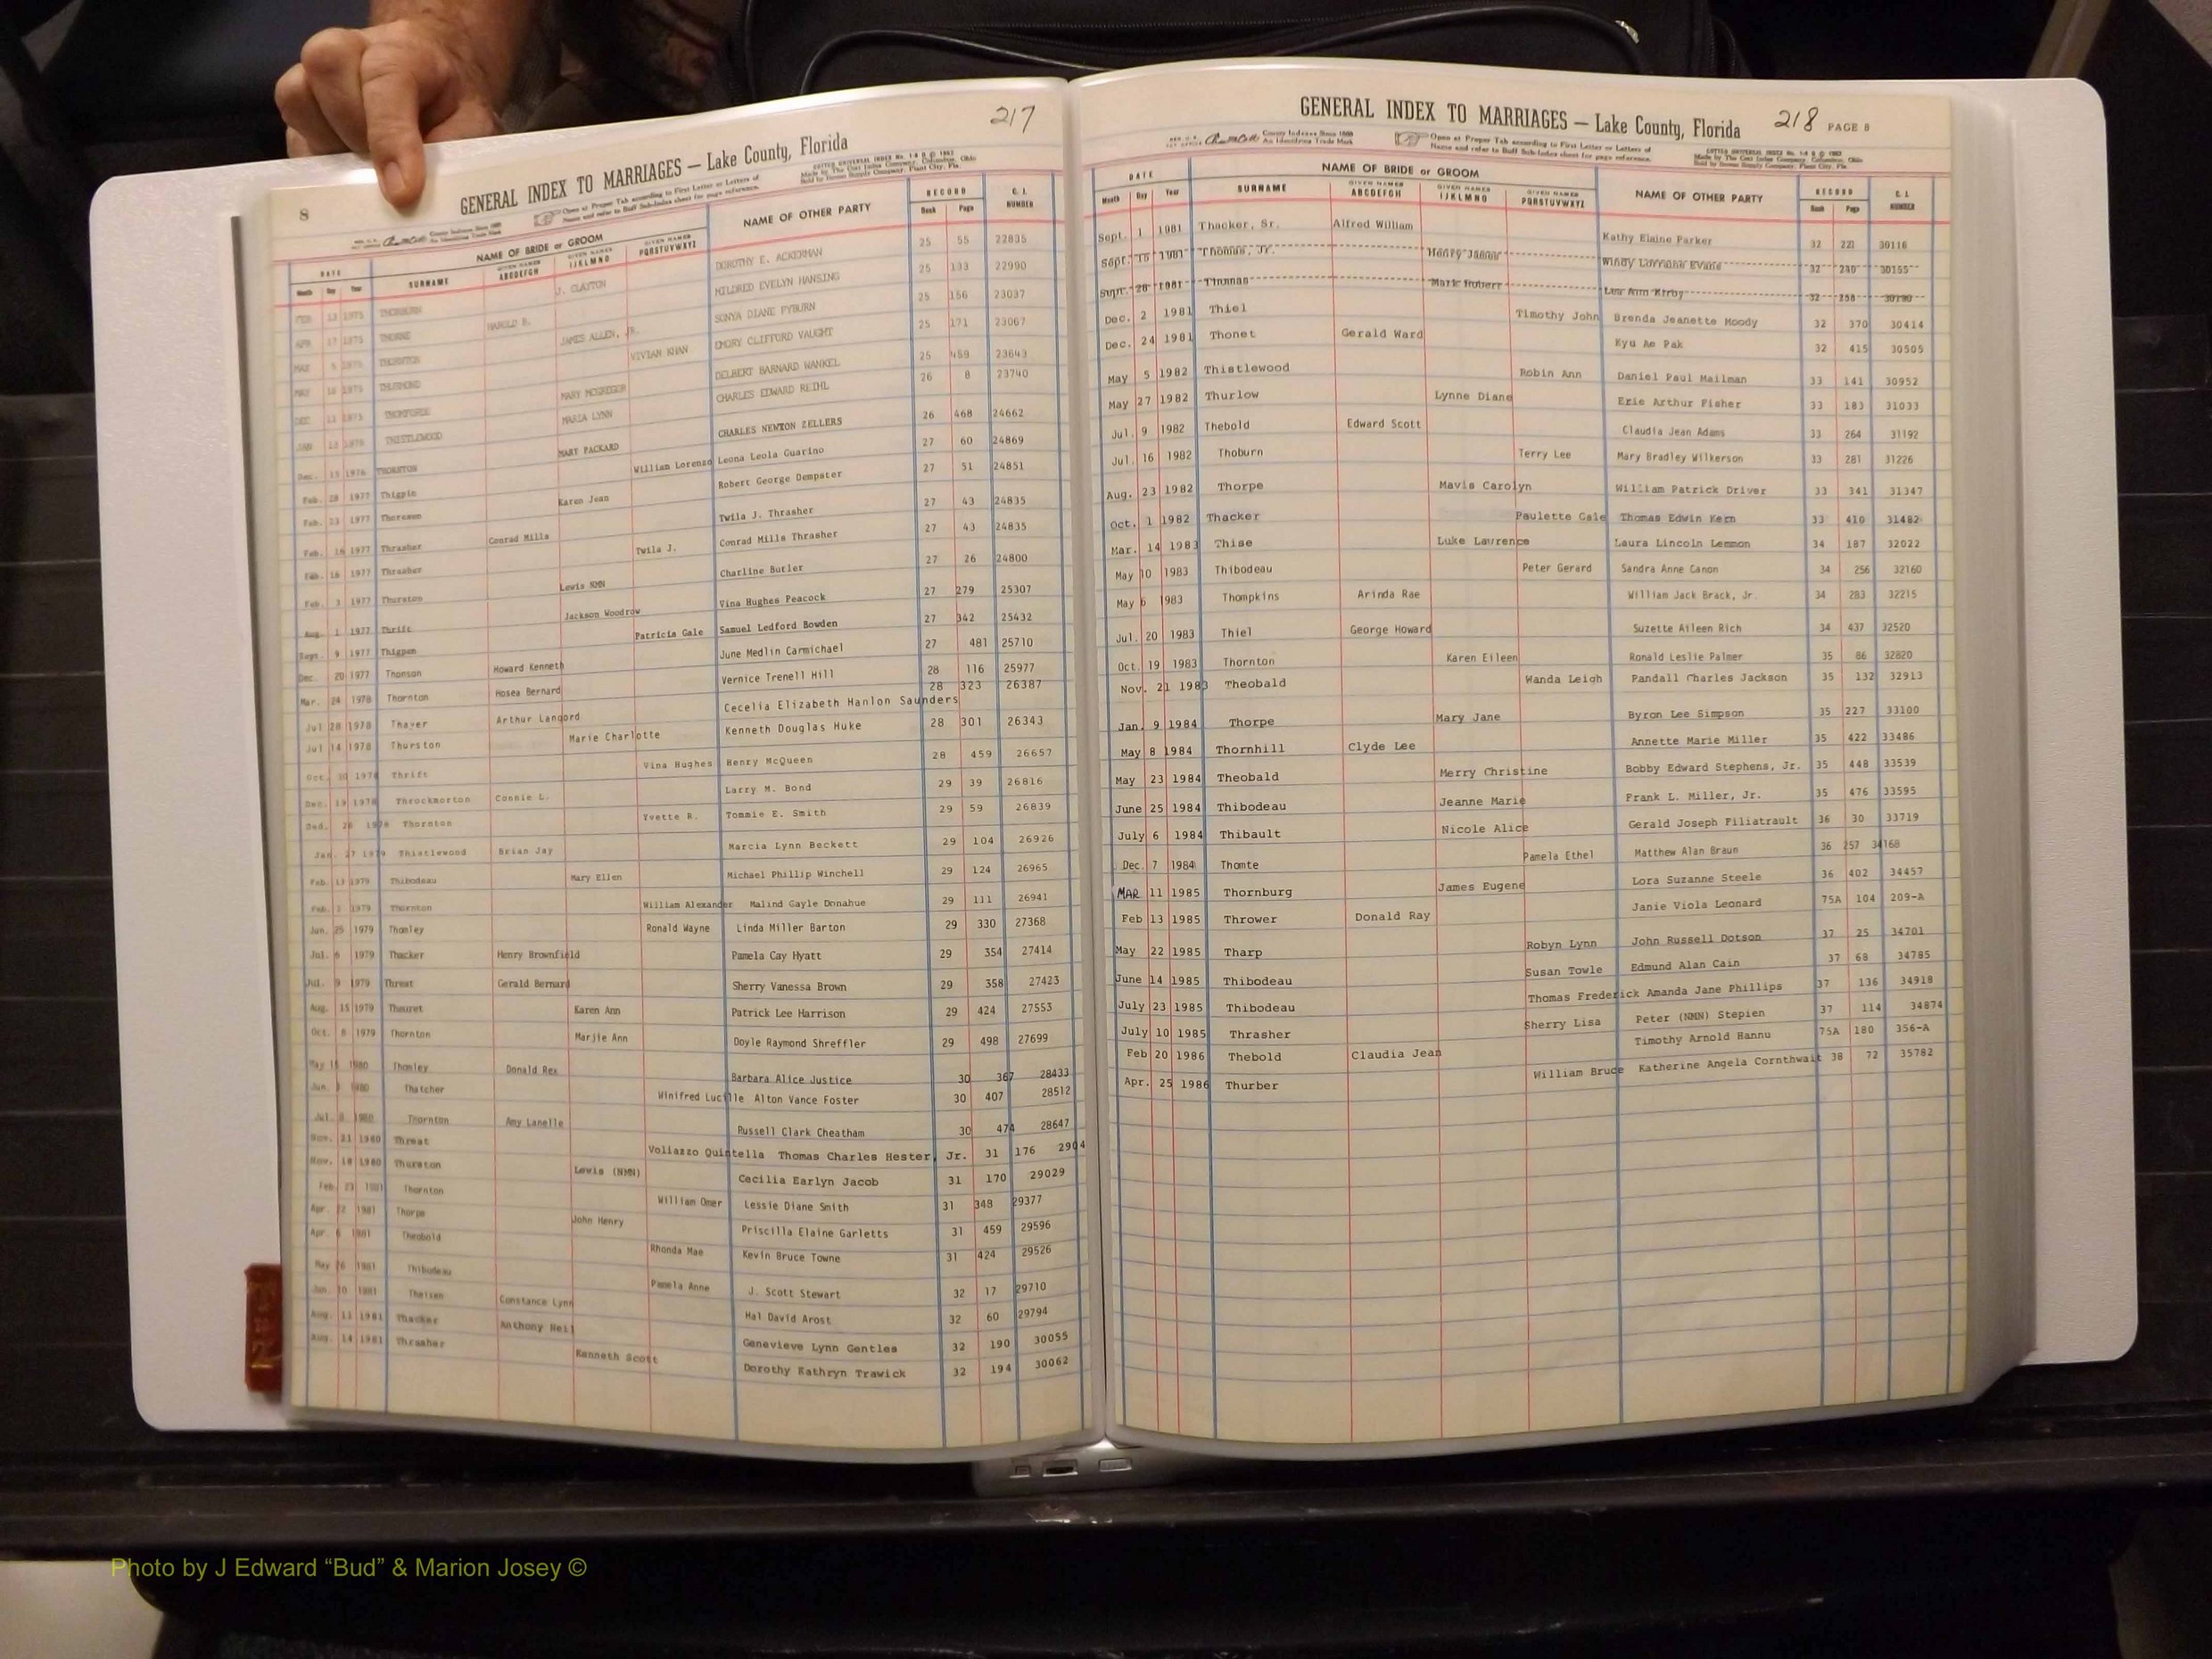 217
GENERAL INDEX TO MARRIAGES — Lake County, Florida
8
Open at Proper Tab according to First Letter or Letters of
Name and refer to Buff Sub-Index sheet for page reference.
DATE NAME OF BRIDE or GROOM NAME OF OTHER PARTY RECORD C. I.
Month Day Year SURNAME GIVEN NAMES ABCDEFGH GIVEN NAMES IJKLMNO GIVEN NAMES PQRSTUVWXYZ Book Page NUMBER
FEB 13 1975 THORBURN J. CLAYTON DOROTHY E. ACKERMAN 25 55 22835
APR 17 1975 THORNE HAROLD R. MILDRED EVELYN HANSING 25 133 22990
1975 THORNTON JAMES ALLEN, JR. SONYA DIANE PYBURN 25 156 23037
MAY THURMOND VIVIAN KHAN EMORY CLIFFORD VAUGHT 25 171 23067
DEC 1975 MARY MCGREGOR DELBERT BARNARD WANKEL 25 459 23643
JAN THISTLEWOOD MARIA LYNN CHARLES EDWARD REIHL 26 8 23740
Dec. 15 1976 THORNTON MARY PACKARD CHARLES NEWTON ZELLERS 26 468 24662
Feb. 28 1977 Thigpin William Lorenzo Leona Leola Guarino 27 60 24869
Feb. 23 1977 Karen Jean Robert George Dempster 27 51 24851
Feb. 16 1977 Thrasher Conrad Mills Twila J. Thrasher 27 43 24835
Feb. 16 1977 Thrasher Twila J. Conrad Mills Thrasher 27 43 24835
Feb. 3 1977 Thurston Lewis NMN Charline Butler 27 26 24800
Aug. 1 1977 Thrift Jackson Woodrow Vina Hughes Peacock 27 279 25307
Sept. 9 1977 Thigpen Patricia Gale Samuel Ledford Bowden 27 342 25432
Dec. 20 1977 Thomson Howard Kenneth June Medlin Carmichael 27 481 25710
Mar. 24 1978 Thornton Hosea Bernard Vernice Trenell Hill 28 116 25977
Jul 28 1978 Thayer Arthur Langord Cecelia Elizabeth Hanlon Saunders 28 323 26387
Jul 14 1978 Thurston Marie Charlotte Kenneth Douglas Huke 28 301 26343
Oct. 30 1978 Thrift Vina Hughes Henry McQueen 28 459 26657
Dec. 19 1978 Throckmorton Connie L. Larry M. Bond 29 39 26816
Ded. 26 1978 Thornton Yvette R. Tommie E. Smith 29 59 26839
Jan. 27 1979 Thistlewood Brian Jay Marcia Lynn Beckett 29 104 26926
Feb. 13 1979 Thibodeau Mary Ellen Michael Phillip Winchell 29 124 26965
Feb. 3 1979 Thornton William Alexander Malind Gayle Donahue 29 111 26941
Jun. 25 1979 Thomley Ronald Wayne Linda Miller Barton 29 330 27368
Jul. 6 1979 Thacker Henry Brownfield Pamela Cay Hyatt 29 354 27414
Jul. 9 1979 Threat Gerald Bernard Sherry Vanessa Brown 29 358 27423
Aug. 15 1979 Thouret Karen Ann Patrick Lee Harrison 29 424 27553
Oct. 8 1979 Thornton Marjie Ann Doyle Raymond Shreffler 29 498 27699
May 1980 Thomley Donald Rex Barbara Alice Justice 30 367 28433
Jun. 1980 Thatcher Winifred Lucille Alton Vance Foster 30 407 28512
Jul. 8 1980 Thornton Amy Lanelle Russell Clark Cheatham 30 474 28647
Nov. 21 1980 Threat Voliazzo Quintella Thomas Charles Hester, Jr. 31 176 2904
Nov. 18 1980 Thurston Lewis (NMN) Cecilia Earlyn Jacob 31 170 29029
Feb. 23 1981 Thornton William Omer Lessie Diane Smith 31 348 29377
Apr. 22 1981 Thorpe John Henry Priscilla Elaine Garletts 31 459 29596
Apr. 6 1981 Theobold Rhonda Mae Kevin Bruce Towne 31 424 29526
May 26 1981 Thibudeau Pamela Anne J. Scott Stewart 32 17 29710
Jun. 10 1981 Theisen Constance Lynn Hal David Arost 32 60 29794
Aug. 11 1981 Thacker Anthony Neil Genevieve Lynn Gentles 32 190 30055
Aug. 14 1981 Thrasher Kenneth Scott Dorothy Kathryn Trawick 32 194 30062
GENERAL INDEX TO MARRIAGES — Lake County, Florida 218 PAGE 8
County Indexes Since 1888
An Identifying Trade Mark
Open at Proper Tab according to First Letter or Letters of
Name and refer to Buff Sub-Index sheet for page reference.
DATE NAME OF BRIDE or GROOM NAME OF OTHER PARTY RECORD C. I.
Month Day Year SURNAME GIVEN NAMES ABCDEFGH GIVEN NAMES IJKLMNO GIVEN NAMES PQRSTUVWXYZ Book Page NUMBER
Sept. 1 1981 Thacker, Sr. Alfred William Kathy Elaine Parker 32 221 30116
Sept. 15 1981 Thomas, Jr. Henry James Windy Lorraine Evans 32 240 30155
Sept. 28 1981 Thomas Mark Robert Lee Ann Kirby 32 258 30190
Dec. 2 1981 Thiel Timothy John Brenda Jeanette Moody 32 370 30414
Dec. 24 1981 Thonet Gerald Ward Kyu Ae Pak 32 415 30505
May 5 1982 Thistlewood Robin Ann Daniel Paul Mailman 33 141 30952
May 27 1982 Thurlow Lynne Diane Eric Arthur Fisher 33 183 31033
Jul. 9 1982 Thebold Edward Scott Claudia Jean Adams 33 264 31192
Jul. 16 1982 Thoburn Terry Lee Mary Bradley Wilkerson 33 281 31226
Aug. 23 1982 Thorpe Mavis Carolyn William Patrick Driver 33 341 31347
Oct. 1 1982 Thacker Paulette Gale Thomas Edwin Kern 33 410 31482
Mar. 14 1983 Thise Luke Lavrence Laura Lincoln Lemmon 34 187 32022
May 10 1983 Thibodeau Peter Gerard Sandra Anne Canon 34 256 32160
May 6 1983 Thompkins Arinda Rae William Jack Brack, Jr. 34 283 32215
Jul. 20 1983 Thiel George Howard Suzette Aileen Rich 34 437 32520
Oct. 19 1983 Thornton Karen Eileen Ronald Leslie Palmer 35 86 32820
Nov. 21 1983 Theobald Wanda Leigh Pandall Charles Jackson 35 132 32913
Jan. 9 1984 Thorpe Mary Jane Byron Lee Simpson 35 227 33100
May 8 1984 Thornhill Clyde Lee Annette Marie Miller 35 422 33486
May 23 1984 Theobald Merry Christine Bobby Edward Stephens, Jr. 35 448 33539
June 25 1984 Thibodeau Jeanne Marie Frank L. Miller, Jr. 35 476 33595
July 6 1984 Thibault Nicole Alice Gerald Joseph Filiatrault 36 30 33719
Dec. 7 1984 Thomte Pamela Ethel Matthew Alan Braun 36 257 34168
MAR 11 1985 Thornburg James Eugene Lora Suzanne Steele 36 402 34457
Feb 13 1985 Thrower Donald Ray Janie Viola Leonard 75A 104 209-A
May 22 1985 Tharp Robyn Lynn John Russell Dotson 37 25 34701
June 14 1985 Thibodeau Susan Towle Edmund Alan Cain 37 68 34785
July 23 1985 Thibodeau Thomas Frederick Amanda Jane Phillips 37 136 34918
July 10 1985 Thrasher Sherry Lisa Peter (NMN) Stepien 37 114 34874
Feb 20 1986 Thebold Claudia Jean Timothy Arnold Hannu 75A 180 356-A
Apr. 25 1986 Thurber William Bruce Katherine Angela Cornthwait 38 72 35782
Photo by J Edward “Bud” & Marion Josey ©